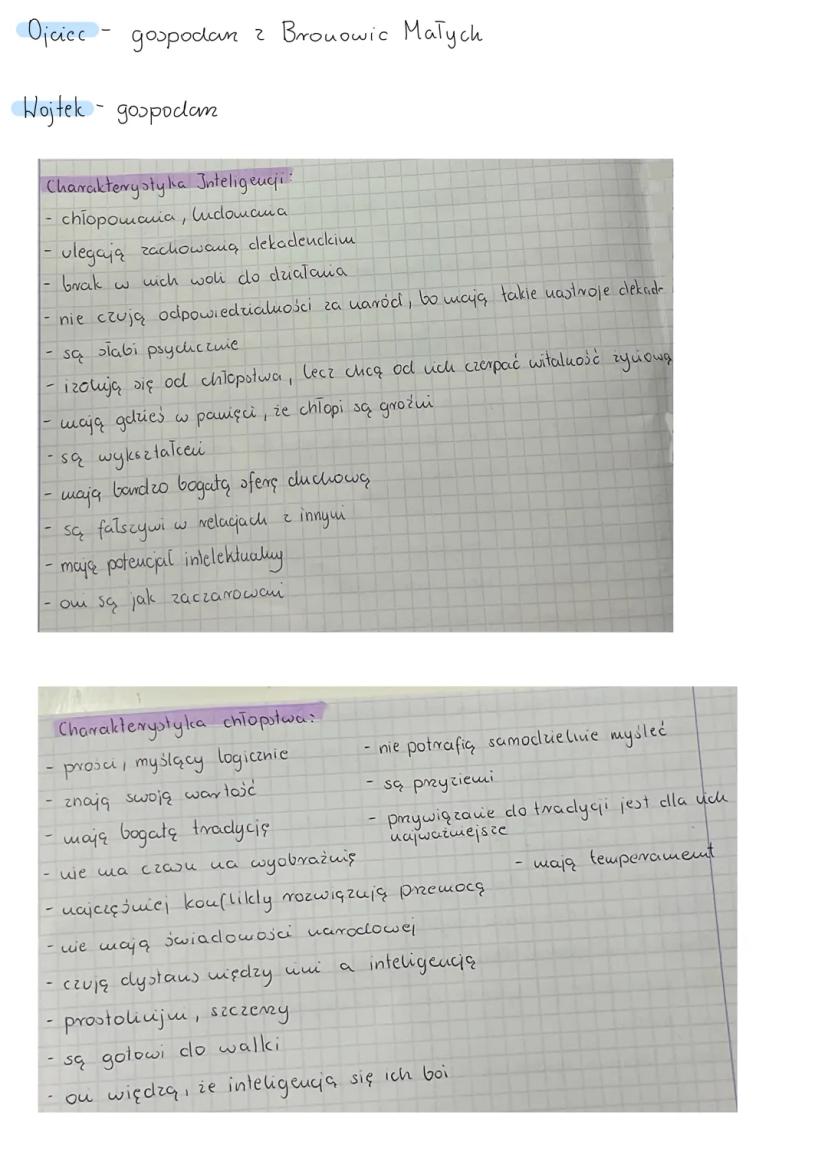 Ojciec - gospodarz z Bronowic Małych
Wojtek - gospodarz
Charakterystyka Inteligencji:
- chłopomania, ludomania
- ulegają zachowaną dekadenckim
- brak w nich woli do działania
- nie czują odpowiedzialności za naród, bo mają takie nastroje dekade
- są słabi psychicznie
- izolują się od chłopstwa, lecz chcą od nich czerpać witalność życiową
- mają gdzieś w pamięci, że chłopi są groźni
- są wykształceni
- mają bardzo bogatą sferę duchową
- są fałszywi w relacjach z innymi
- mają potencjał intelektualny
- oni są jak zaczarowani
Charakterystyka chłopstwa:
- prości, myślący logicznie
- znają swoją wartość
- mają bogatę tradycję
- nie ma czasu na wyobraźnię
- najczęściej konflikty rozwiązują przemocą
- nie mają świadomości narodowej
- czują dystans między nimi a inteligencją
- prostolinijni, szczerzy
- są gotowi do walki
- oni wiedzą, że inteligencja się ich boi
- nie potrafią samodzielnie myśleć
- są przyziemni
- przywiązanie do tradycji jest dla nich
najważniejsze
- mają temperament